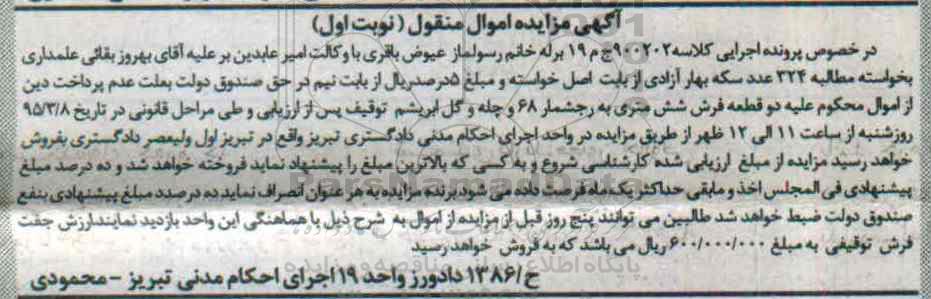 آگهی مزایده اموال منقول (نوبت اول)
در خصوص پرونده اجرایی کلاسه ۹۰۰۲۰۲ج م ۱۹ برله خانم رسولماز عیوض باقری با وکالت امیر عابدین بر علیه آقای بهروز بقائی علمداری
بخواسته مطالبه ۳۲۴ عدد سکه بهار آزادی از بابت اصل خواسته و مبلغ ۵درصدریال از بابت نیم در حق صندوق دولت بعلت عدم پرداخت دین
از اموال محکوم علیه دو قطعه فرش شش متری به رجشمار ۶۸ و چله و گل ابریشم توقیف پس از ارزیابی و طی مراحل قانونی در تاریخ ۹۵/۳/۸
روزشنبه از ساعت ۱۱ الی ۱۲ ظهر از طریق مزایده در واحد اجرای احکام مدنی دادگستری تبریز واقع در تبریز اول ولیعصر دادگستری بفروش
خواهد رسید مزایده از مبلغ ارزیابی شده کارشناسی شروع و به کسی که بالاترین مبلغ را پیشنهاد نماید فروخته خواهد شد و ده درصد مبلغ
پیشنهادی فی المجلس اخذ و مابقی حداکثر یک ماه فرصت داده می شود.برنده مزایده به هر عنوان انصراف نماید ده درصدد مبلغ پیشنهادی بنفع
صندوق دولت ضبط خواهد شد طالبین می توانند پنج روز قبل از مزایده از اموال به شرح ذیل با هماهنگی این واحد بازدید نمایندارزش جفت
فرش توقیفی به مبلغ ۶۰۰/۰۰۰/۰۰۰ریال می باشد که به فروش خواهد رسید
ع/۱۳۸۶ دادورز واحد ۱۹ اجرای احکام مدنی تبریز - محمودی